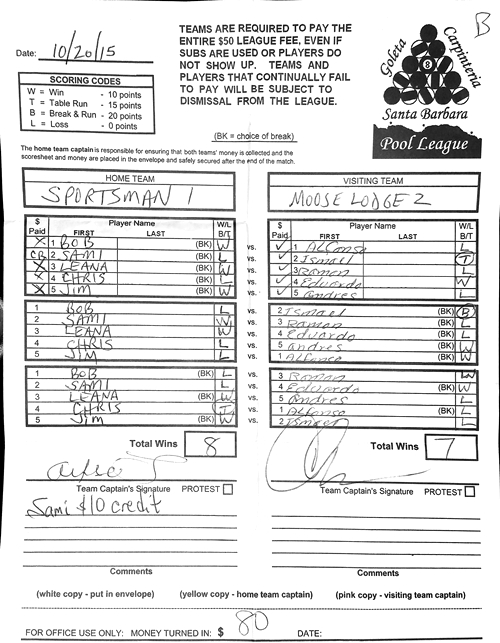 B
Date: 10/20/15
TEAMS ARE REQUIRED TO PAY THE
ENTIRE $50 LEAGUE FEE, EVEN IF
SUBS ARE USED OR PLAYERS DO
NOT SHOW UP. TEAMS AND
PLAYERS THAT CONTINUALLY FAIL
TO PAY WILL BE SUBJECT TO
DISMISSAL FROM THE LEAGUE.
SCORING CODES
W = Win - 10 points
T = Table Run - 15 points
B = Break & Run - 20 points
L = Loss - 0 points
Goleta Carpinteria
8
Santa Barbara
Pool League
(BK = choice of break)
The home team captain is responsible for ensuring that both teams' money is collected and the
scoresheet and money are placed in the envelope and safely secured after the end of the match.
HOME TEAM
SPORTSMAN 1
$ Paid Player Name W/L
FIRST LAST B/T
X 1 BOB (BK) W vs.
CR 2 SAMI (BK) L vs.
X 3 LEANA (BK) W vs.
X 4 CHRIS (BK) L vs.
X 5 JIM (BK) W vs.
1 BOB L vs.
2 SAMI W vs.
3 LEANA W vs.
4 CHRIS L vs.
5 JIM L vs.
1 BOB (BK) L vs.
2 SAMI L vs.
3 LEANA (BK) W vs.
4 CHRIS T vs.
5 Jim (BK) W vs.
Total Wins 8
Team Captain's Signature PROTEST
Sami $10 credit
Comments
VISITING TEAM
MOOSE LODGE 2
$ Paid Player Name W/L
FIRST LAST B/T
✓ 1 Alfonso L
✓ 2 Ismael T
✓ 3 Ramon L
✓ 4 Eduardo W
✓ 5 Andres L
2 Ismael (BK) B
3 Ramon (BK) L
4 Eduardo (BK) L
5 Andres (BK) W
1 Alfonso (BK) W
3 Ramon W
4 Eduardo (BK) W
5 Andres L
1 Alfonso (BK) L
2 Ismael L
Total Wins 7
Team Captain's Signature PROTEST
Comments
(white copy - put in envelope) (yellow copy - home team captain) (pink copy - visiting team captain)
FOR OFFICE USE ONLY: MONEY TURNED IN: $ 80 DATE: